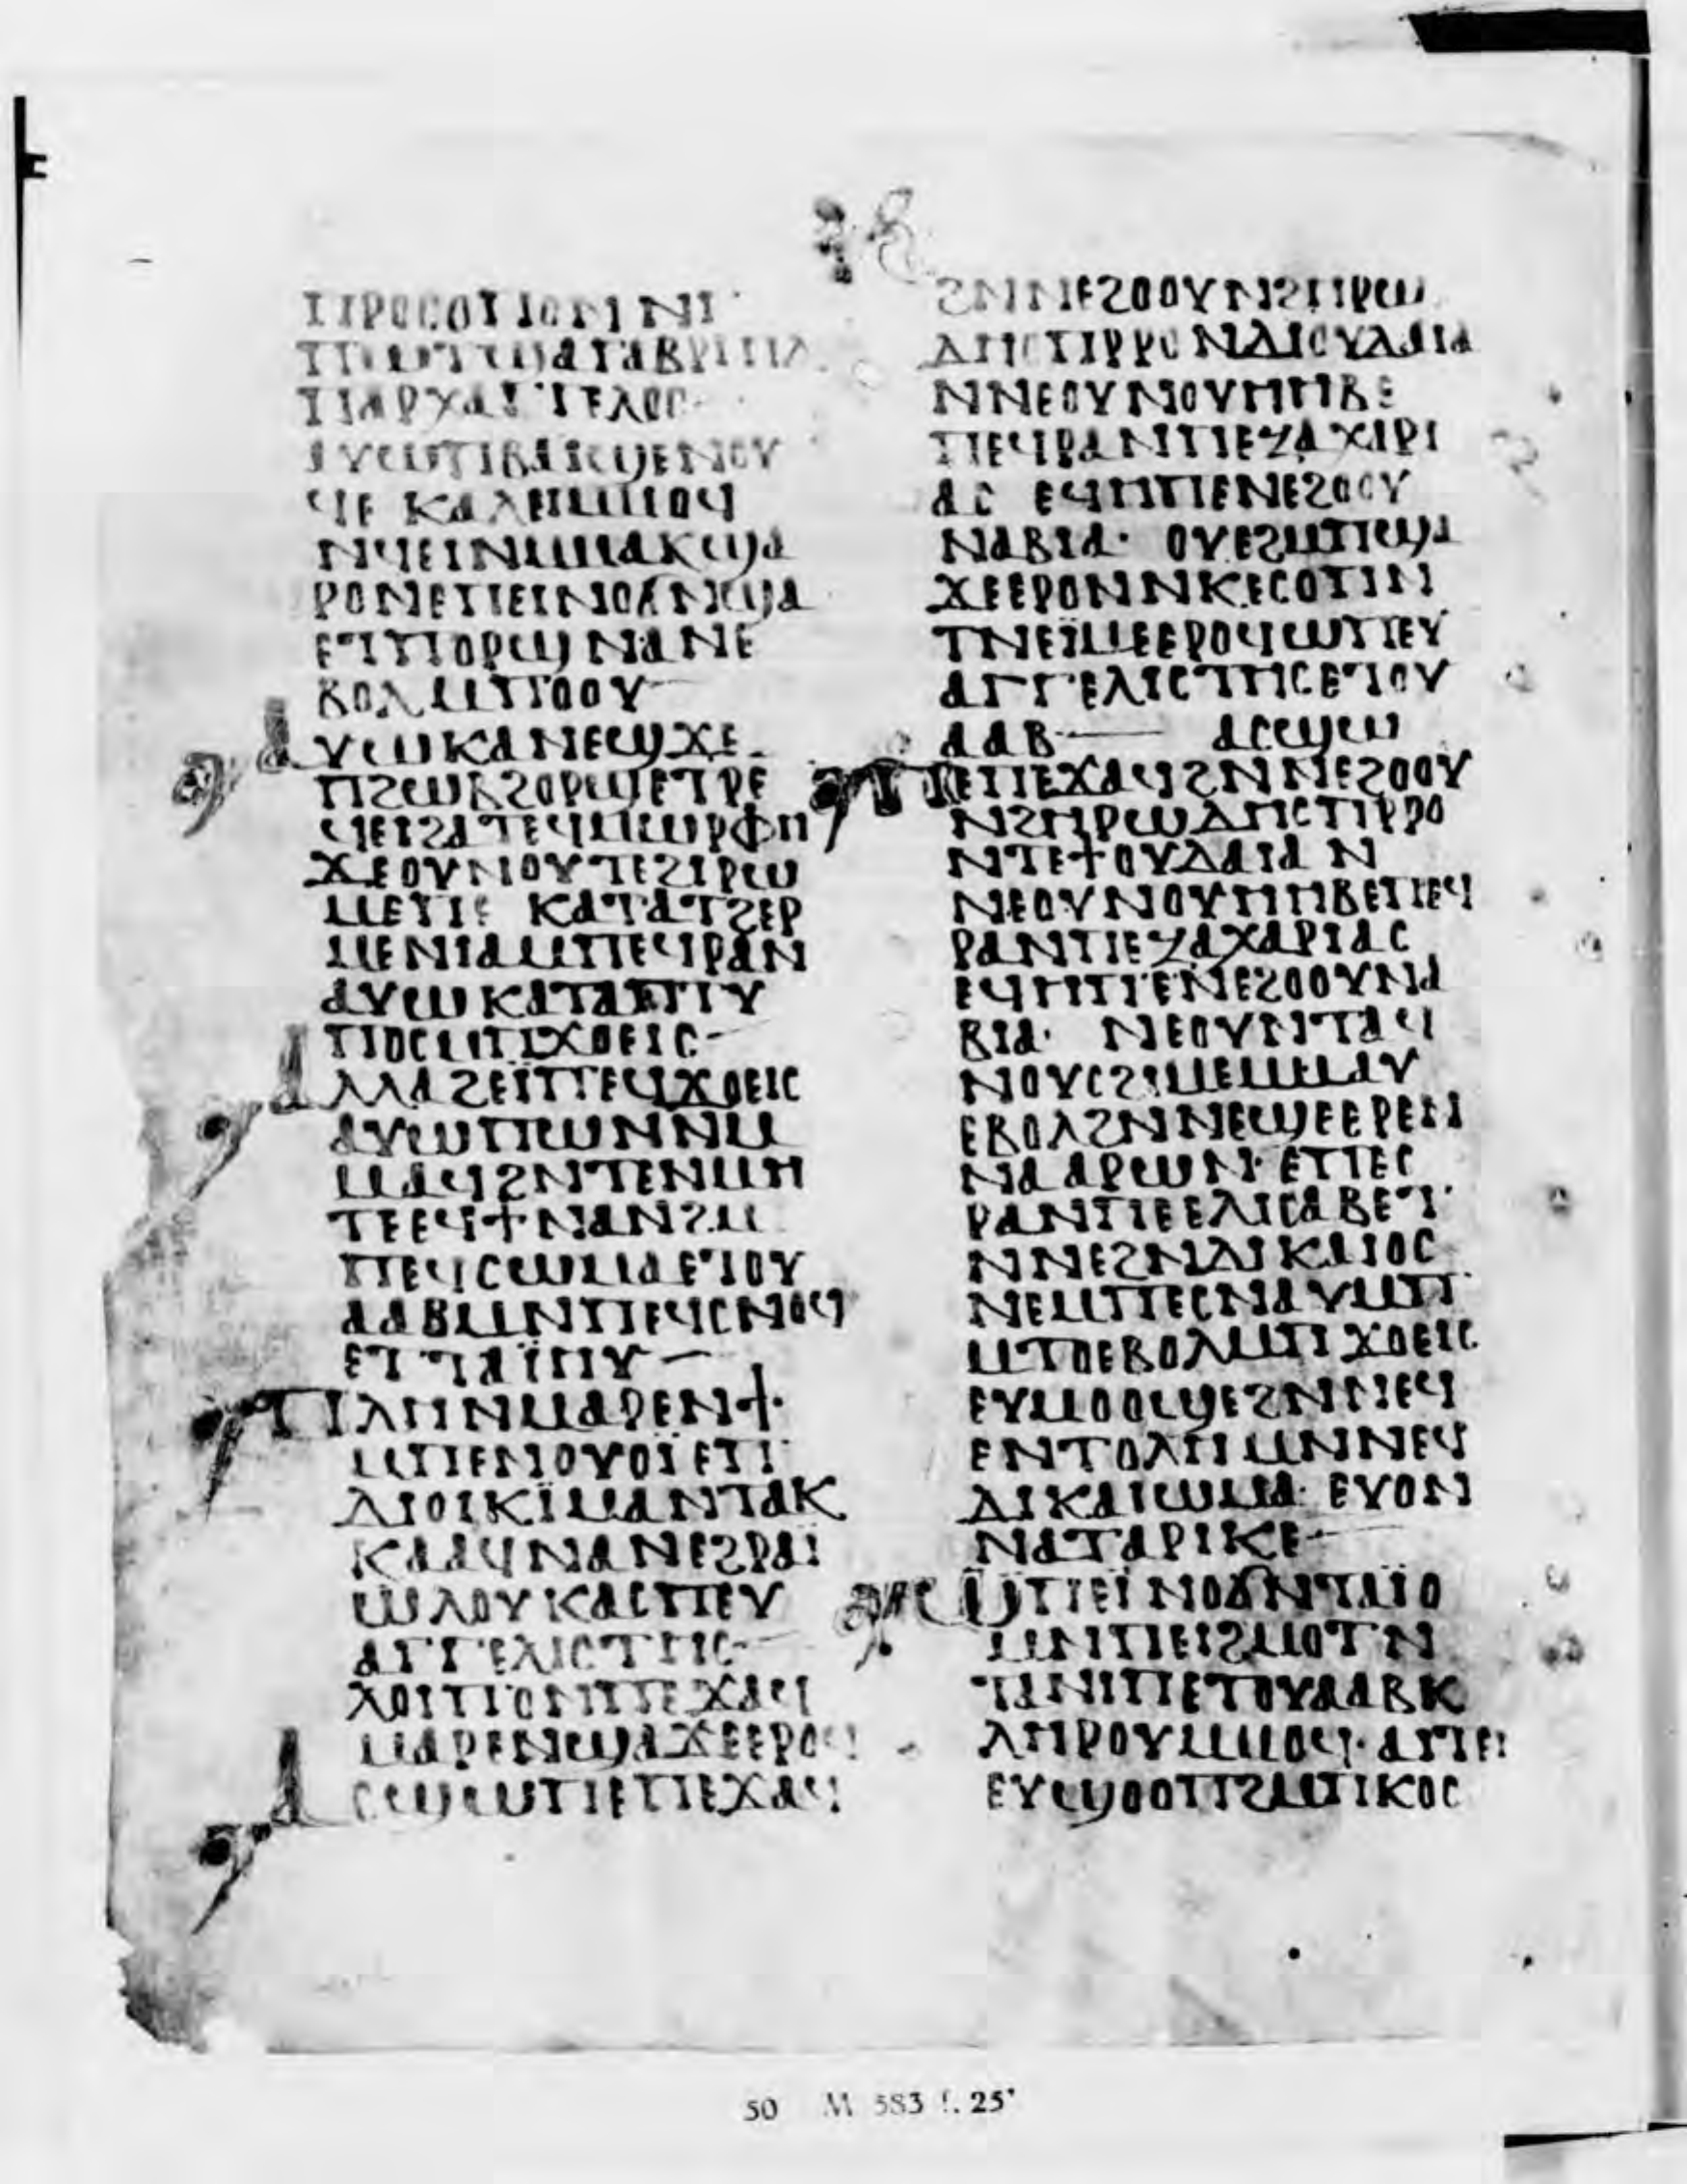 ⲡⲣⲟⲥⲟⲡⲟⲛ ⲛⲓⲙ
ⲡⲁⲣⲭⲁⲅⲅⲉⲗⲟⲥ
ⲁⲩⲱ ⲡⲃⲁⲓϣⲉⲛⲟⲩ
ϥⲉ ⲕⲁⲗⲉⲓ ⲙⲙⲟϥ
ⲛϥⲉⲓ ⲛⲙⲙⲁⲕ ϣⲁ
ⲣⲟⲛ ⲉⲡⲉⲓⲛⲟϭ ⲛϣⲁ
ⲉⲧⲡⲟⲣϣ ⲛⲁⲛ ⲉ
ⲃⲟⲗ ⲙⲡⲟⲟⲩ
ⲁⲩⲱ ⲕⲁⲛ ⲉϣϫⲉ
ⲡϩⲱⲃ ϩⲟⲣϣ ⲉⲧⲣⲉ
ϥⲉⲓ ϩⲁ ⲧⲉϥⲙⲟⲣⲫⲏ
ϫⲉ ⲟⲩⲛⲟⲩⲧⲉ ϩⲓ ⲣⲱ
ⲙⲉ ⲡⲉ ⲕⲁⲧⲁ ⲑⲉⲣ
ⲙⲉⲛⲓⲁ ⲙⲡⲉϥⲣⲁⲛ
ⲁⲩⲱ ⲕⲁⲧⲁ ⲡⲧⲩ
ⲡⲟⲥ ⲙⲡϫⲟⲉⲓⲥ
ⲁⲗⲗⲁ ϩⲉⲓ ⲡⲉϥϫⲟⲉⲓⲥ
ⲁⲩⲱ ⲡⲱⲛ ⲛⲙ
ⲙⲁϥ ϩⲛ ⲧⲉⲛⲙⲏ
ⲧⲉ ⲉϥϯ ⲛⲁⲛ ϩⲙ
ⲡⲉϥⲥⲱⲙⲁ ⲉⲧⲟⲩ
ⲁⲁⲃ ⲙⲛ ⲡⲉϥⲥⲛⲟϥ
ⲉⲧⲧⲁⲓⲏⲩ
ⲡⲗⲏⲛ ⲙⲁⲣⲉⲛϯ
ⲙⲡⲉⲛⲟⲩⲟⲓ ⲉⲡ
ⲇⲓⲟⲓⲕⲓⲙⲁ ⲛⲧⲁⲕ
ⲕⲁⲁϥ ⲛⲁⲛ ⲉϩⲣⲁⲓ
ⲱ ⲗⲟⲩⲕⲁⲥ ⲡⲉⲩ
ⲁⲅⲅⲉⲗⲓⲥⲧⲏⲥ
ⲗⲟⲓⲡⲟⲛ ⲡⲉϫⲁϥ
ⲙⲁⲣⲉⲛϣⲁϫⲉ ⲉⲣⲟϥ
ⲁⲥϣⲱⲡⲉ ⲡⲉϫⲁϥ
ϩⲛ ⲛⲉϩⲟⲟⲩ ⲛϩⲏⲣⲱ
ⲇⲏⲥ ⲡⲣⲣⲟ ⲛϯⲟⲩⲇⲁⲓⲁ
ⲛⲛⲉⲟⲩⲛ ⲟⲩⲏⲏⲃ ⲉ
ⲡⲉϥⲣⲁⲛ ⲡⲉ ⲍⲁⲭⲁⲣⲓ
ⲁⲥ ⲉϥⲏⲡ ⲉⲛⲉϩⲟⲟⲩ
ⲛⲁⲃⲓⲁ· ⲟⲩⲉϩⲙ ⲡϣⲁ
ϫⲉ ⲉⲣⲟⲛ ⲛⲕⲉⲥⲟⲡ ⲛ
ⲧⲛⲉⲓⲙⲉ ⲉⲣⲟϥ ⲱ ⲡⲉⲩ
ⲁⲅⲅⲉⲗⲓⲥⲧⲏⲥ ⲉⲧⲟⲩ
ⲁⲁⲃ ⲁⲥϣⲱ
ⲡⲉ ⲡⲉϫⲁϥ ϩⲛ ⲛⲉϩⲟⲟⲩ
ⲛϩⲏⲣⲱⲇⲏⲥ ⲡⲣⲣⲟ
ⲛⲧⲉ ϯⲟⲩⲇⲁⲓⲁ ⲛ
ⲛⲉⲟⲩⲛ ⲟⲩⲏⲏⲃ ⲉⲡⲉϥ
ⲣⲁⲛ ⲡⲉ ⲍⲁⲭⲁⲣⲓⲁⲥ
ⲉϥⲏⲡ ⲉⲛⲉϩⲟⲟⲩ ⲛⲁ
ⲃⲓⲁ· ⲛⲉⲟⲩⲛⲧⲁϥ
ⲛⲟⲩⲥϩⲓⲙⲉ ⲙⲙⲁⲩ
ⲉⲃⲟⲗ ϩⲛ ⲛⲉϣⲉⲉⲣⲉ ⲛ
ⲛⲁⲁⲣⲱⲛ· ⲉⲡⲉⲥ
ⲣⲁⲛ ⲡⲉ ⲉⲗⲓⲥⲁⲃⲉⲧ·
ⲛⲛⲉϩⲛⲇⲓⲕⲁⲓⲟⲥ
ⲛⲉ ⲙⲡⲉⲥⲛⲁⲩ ⲙⲡ
ⲙⲧⲟ ⲉⲃⲟⲗ ⲙⲡϫⲟⲉⲓⲥ
ⲉⲩⲙⲟⲟϣⲉ ϩⲛ ⲛⲉϥ
ⲉⲛⲧⲟⲗⲏ ⲙⲛ ⲛⲉϥ
ⲇⲓⲕⲁⲓⲱⲙⲁ· ⲉⲩⲟ ⲛ
ⲛⲁⲧⲁⲣⲓⲕⲉ
ⲱ ⲡⲉⲓⲛⲟϭ ⲛⲧⲁⲓⲟ
ⲙⲛ ⲡⲉⲓϩⲙⲟⲧ ⲛ
ⲧⲁ ⲡⲡⲉⲧⲟⲩⲁⲁⲃ ⲕ
ⲗⲏⲣⲟⲩ ⲙⲙⲟϥ· ⲁⲡⲉⲓ
ⲉⲩϣⲟⲟⲡ ϩⲙ ⲡⲕⲟⲥ
50 M 583 f. 25ᵛ